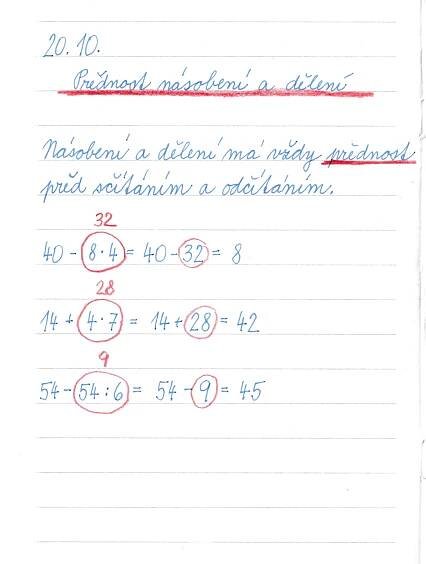 20. 10.
Přednost násobení a dělení
Násobení a dělení má vždy přednost
před sčítáním a odčítáním.
32
40 - 8 · 4 = 40 - 32 = 8
28
14 + 4 · 7 = 14 + 28 = 42
9
54 - 54 : 6 = 54 - 9 = 45